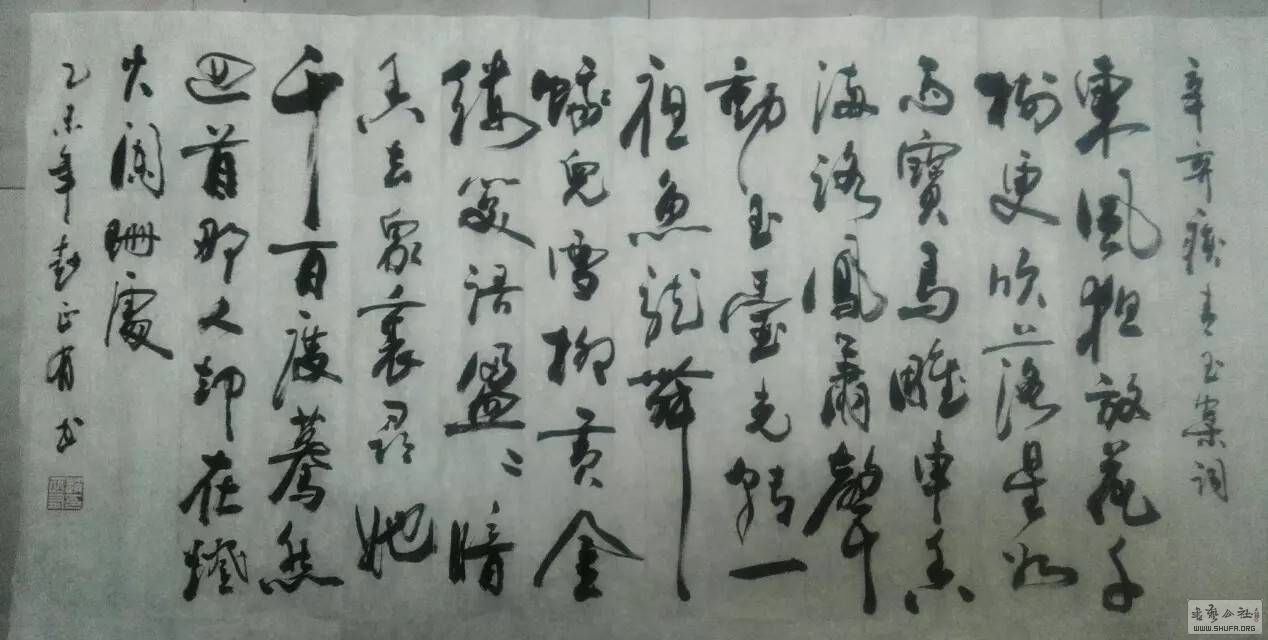 辛弃疾青玉案词
東風亱放花千
樹更吹落星如
雨寶馬雕車香
满路鳳簫聲
動玉壺光轉一
亱魚龍舞
蛾兒雪柳黄金
縷笑語盈々暗
香去眾裏尋她
千百度驀然
迴首那人却在燈
火闌珊處
乙未年赵正有书
书艺公社
WWW.SHUFA.ORG